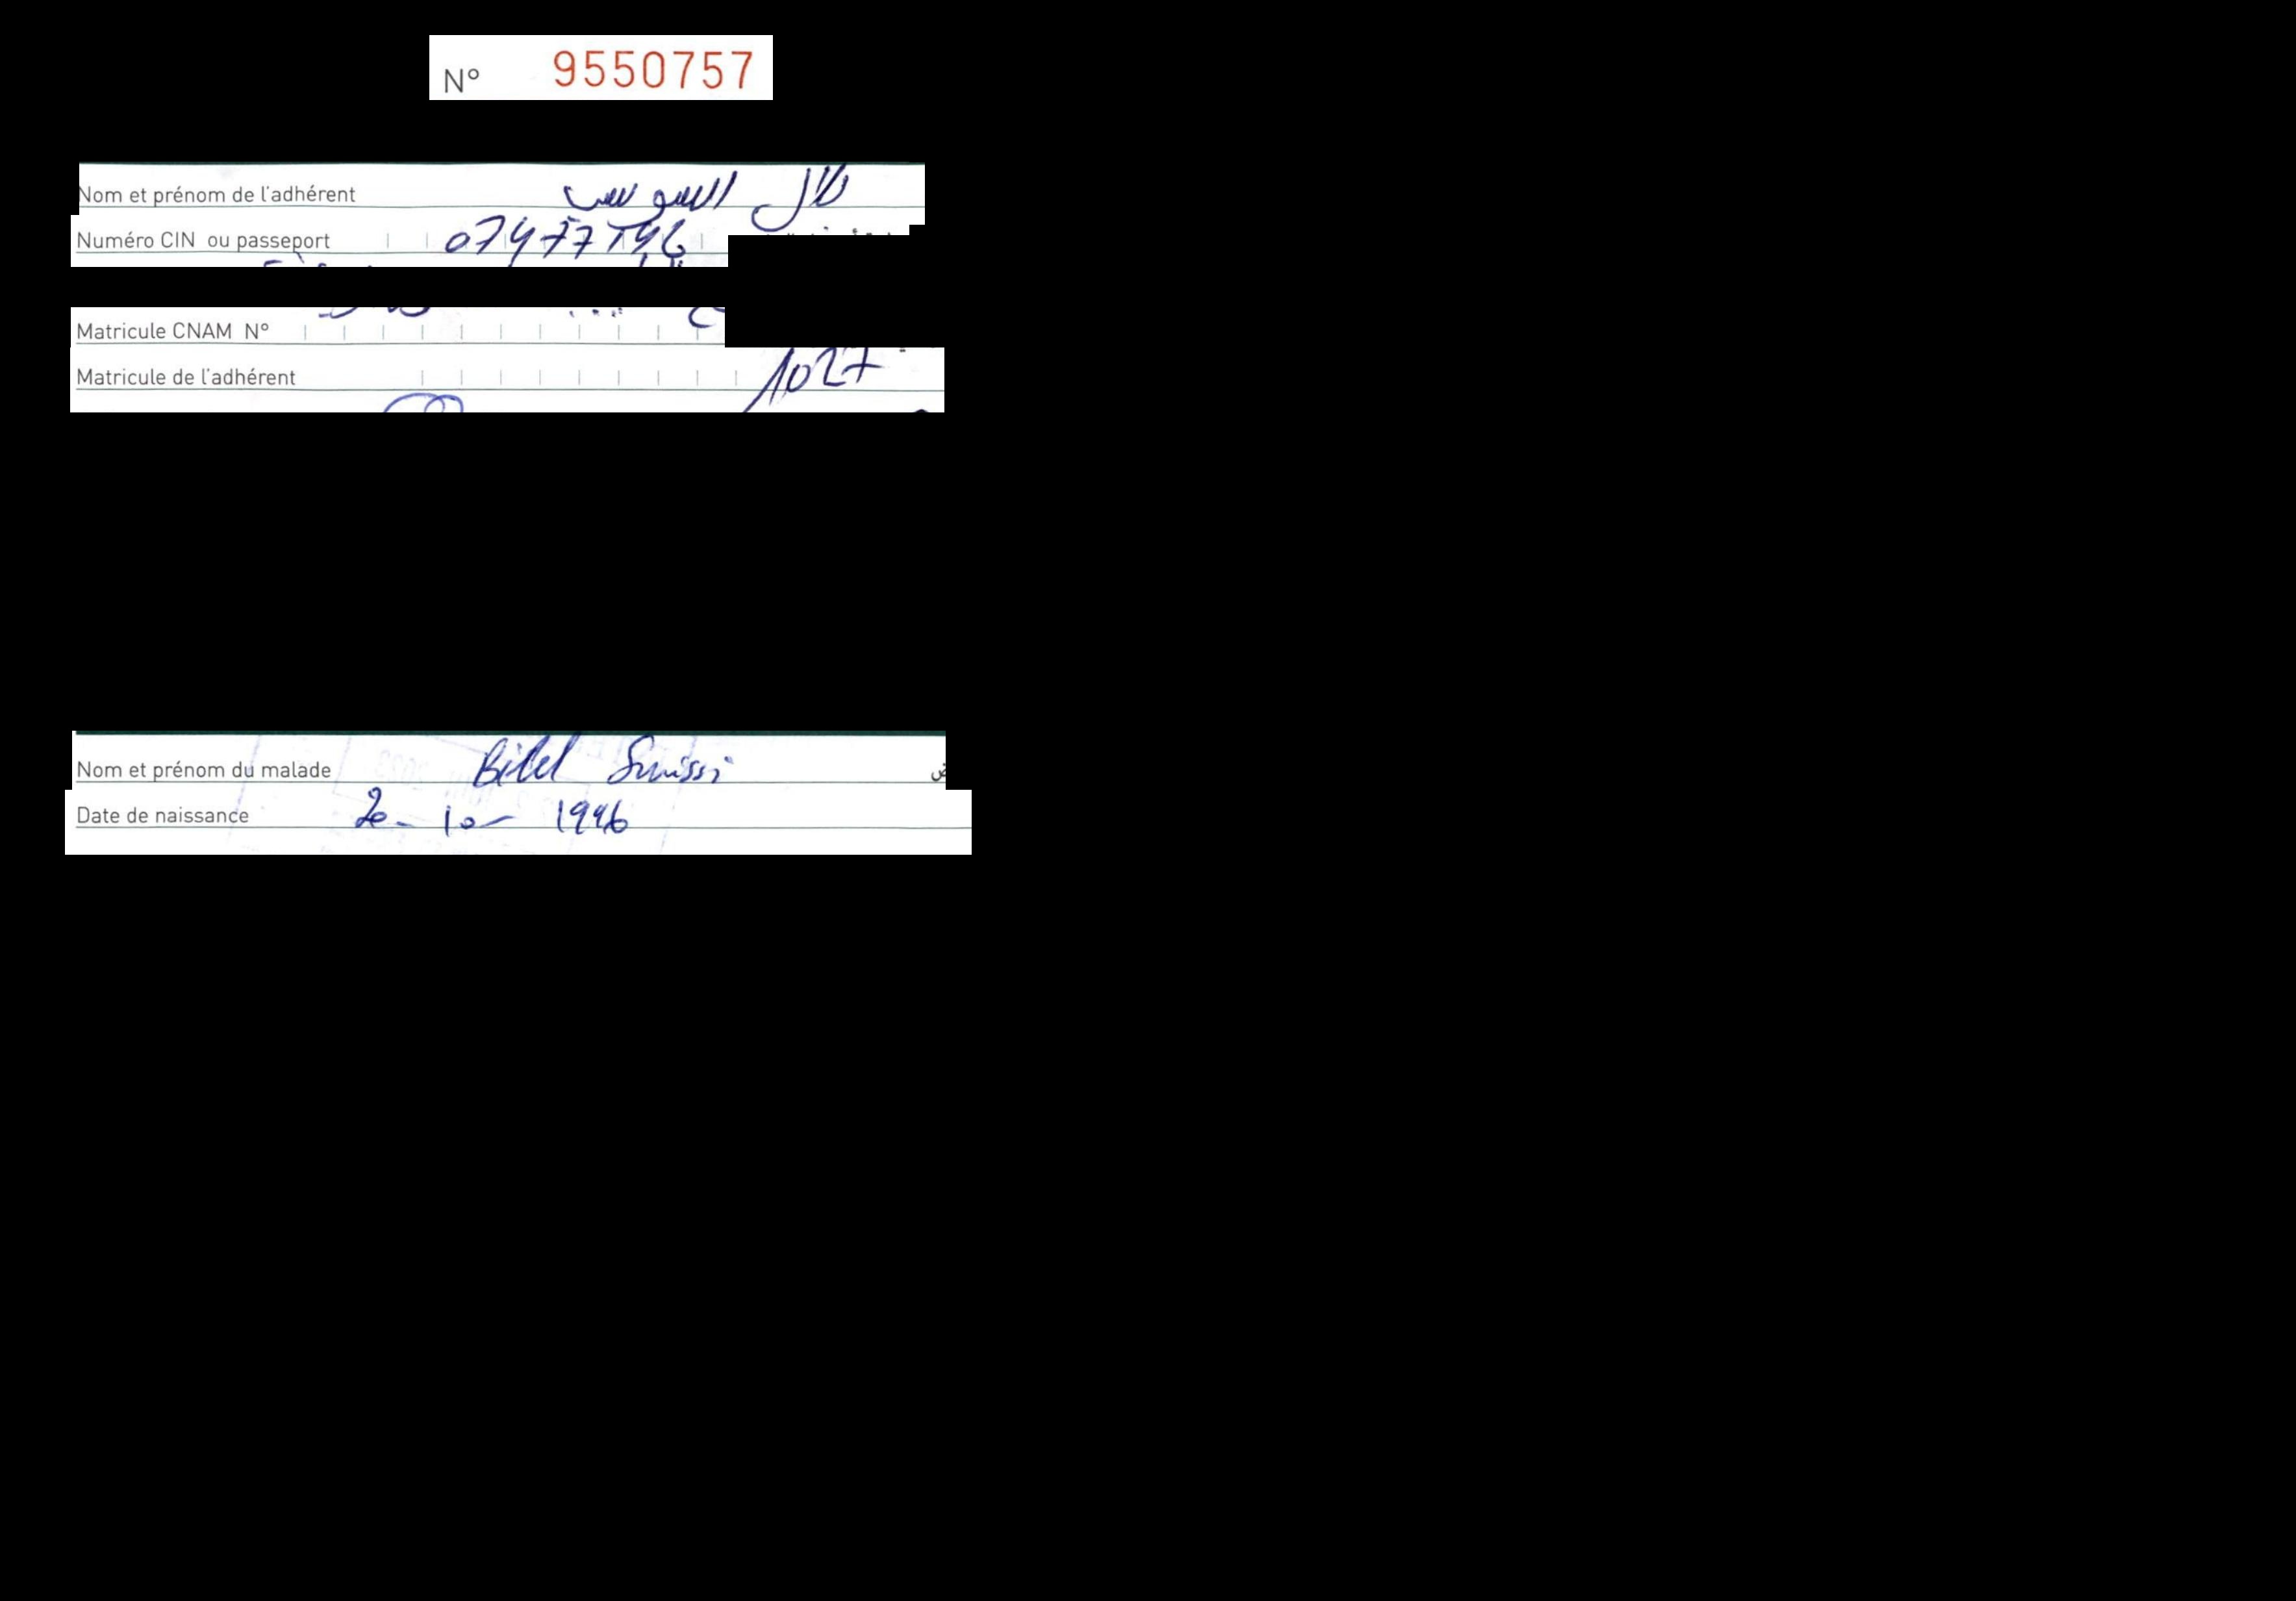 N° 9550757
Nom et prénom de l'adhérent بلال السويسي
Numéro CIN ou passeport
Matricule CNAM N°
Matricule de l'adhérent 1027
Nom et prénom du malade Bilel Suissi
Date de naissance 20-10-1996